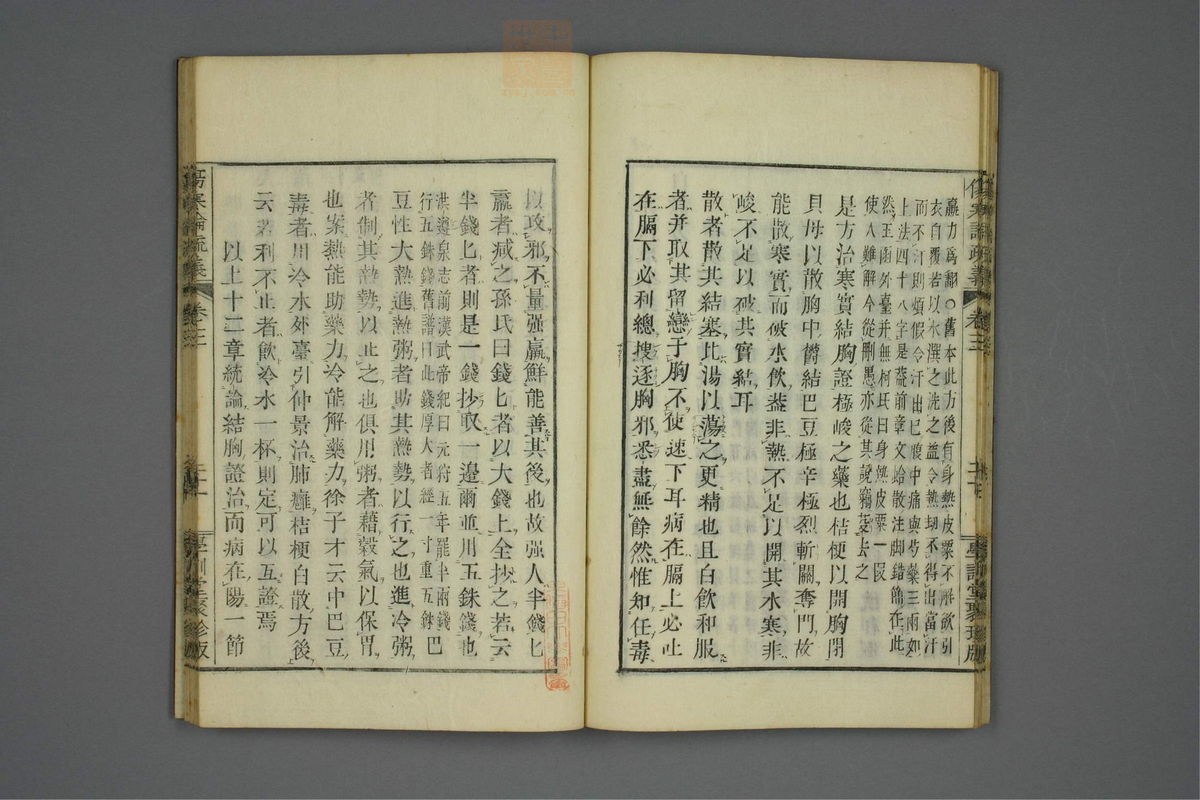 羸力爲翻○舊本此方後有身熱皮粟不解欲引
衣自覆若以水潠之洗之益令熱却不得出當汗
而不汗則煩假令汗出已腹中痛與芍藥三兩如
上法四十八字是蓋前章文蛤散注脚錯簡在此
然玉函外臺并無柯氏曰身熱皮粟一段
使人難解今從刪愚亦從其說竊芟去之
是方治寒實結胸證極峻之藥也桔梗以開胸閉
貝母以散胸中鬱結巴豆極辛極烈斬關奪門故
能散寒實而破水飲葢非熱不足以開其水寒非
峻不足以破其實結耳
散者散其結塞此湯以蕩之更精也且白飲和服
者并取其留戀于胸不使速下耳病在膈上必吐
在膈下必利總搜逐胸邪悉盡無餘然惟知任毒
傷寒論疏義 卷三
以攻邪不量强羸鮮能善其後也故强人半錢匕
羸者減之孫氏曰錢匕者以大錢上全抄之若云
半錢匕者則是一錢抄取一邊爾並用五銖錢也
洪遵泉志前漢武帝紀曰元狩五年罷半兩錢
行五銖錢舊譜曰此錢厚大者經一寸重五銖
巴
豆性大熱進熱粥者助其熱勢以行之也進冷粥
者制其熱勢以止之也俱用粥者藉穀氣以保胃
也案熱能助藥力冷能解藥力徐子才云中巴豆
毒者用冷水外臺引仲景治肺癰桔梗白散方後
云若利不止者飲冷水一杯則定可以互證焉
以上十二章統論結胸證治而病在陽一節
傷寒論疏義 卷三
學訓堂聚珍版